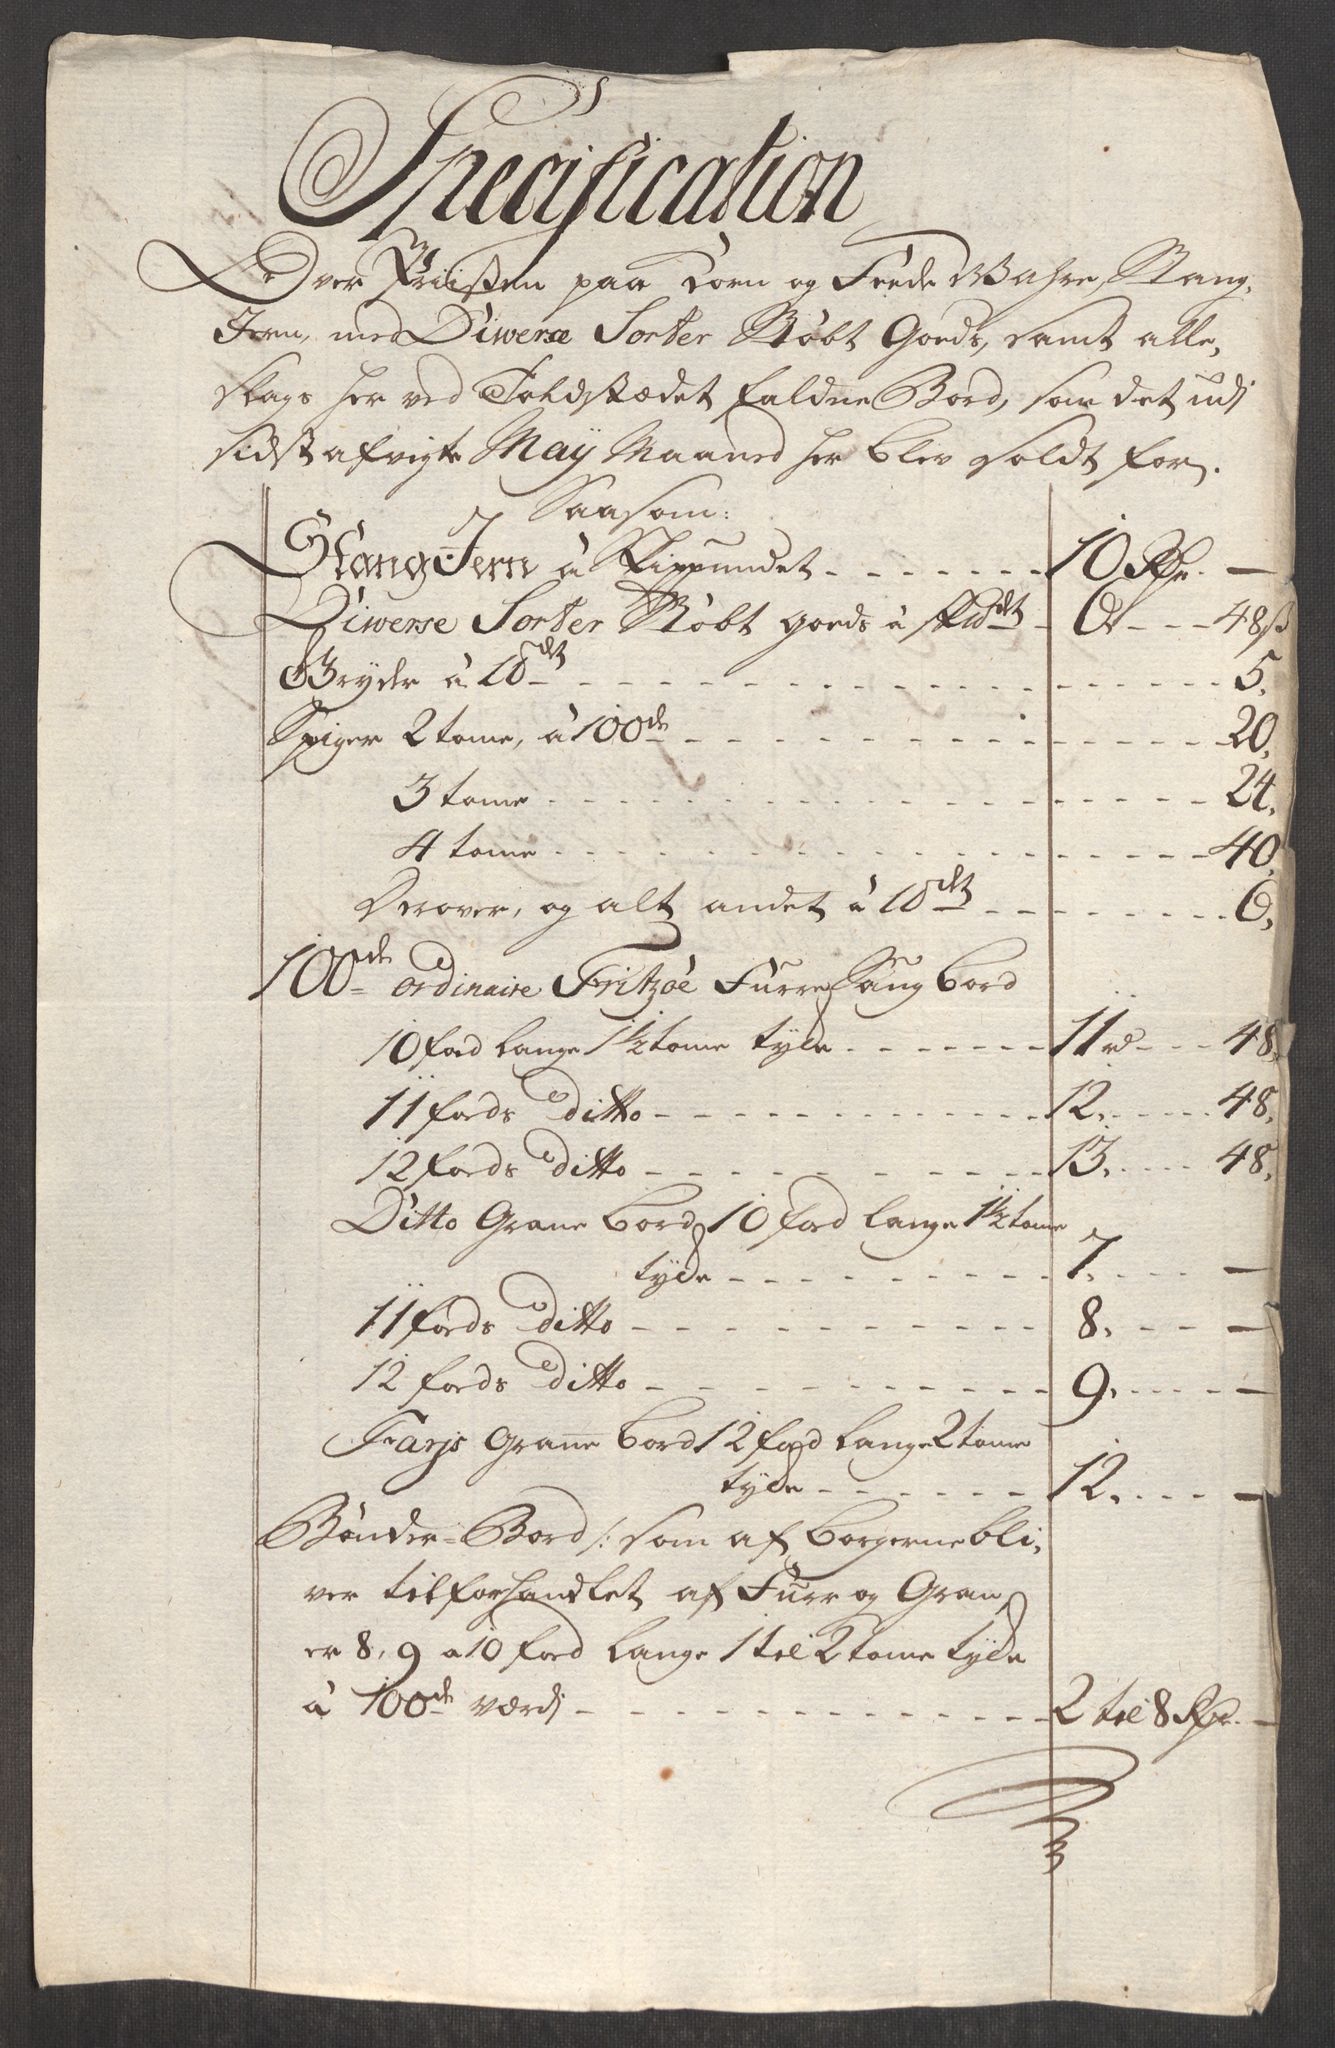 Specification
Over Priisen paa Korn og Feede Wahre, Stang-
Jern, med Diwerse Sorter Støbt Goeds, samt alle-
slags her ved Toldstædet faldne Bord, som det udj
sidst afvigte Maÿ Maaned her blev soldt for.
Saasom:
Stang Jern à Skippundet - - - 10 Rdr. —
Diwerse Sorter Støbt goeds à Skldt - 6 - - - 48 ß
Gryder à 1℔ - - - 5.
Spiger 2 tome, à 100de - - - 20.
3 tome - - - 24.
4 tome - - - 40.
Derover, og alt andet à 1℔ - - - 6.
100de ordinaire Fritzøe Furre Saug bord
10 fod lange 1½ tome tyke - - - 11 rd - - - 48.
11 fods ditto - - - 12. - - - 48.
12 fods ditto - - - 13. - - - 48.
Ditto Grane bord 10 fod lange 1½ tome
tyke - - - 7. - - - —
11 fods ditto - - - 8. - - - —
12 fods ditto - - - 9. - - - —
Farjs Grane bord 12 fod lange 2 tome
tyke - - - 12. - - - —
Bønder-Bord /: som af borgerne bli-
ver tilforhandlet af Furr og Gran
er 8, 9 a 10 fod lange 1 til 2 tome tyke
à 100de værdj - - - 2 til 8 Rdr. —